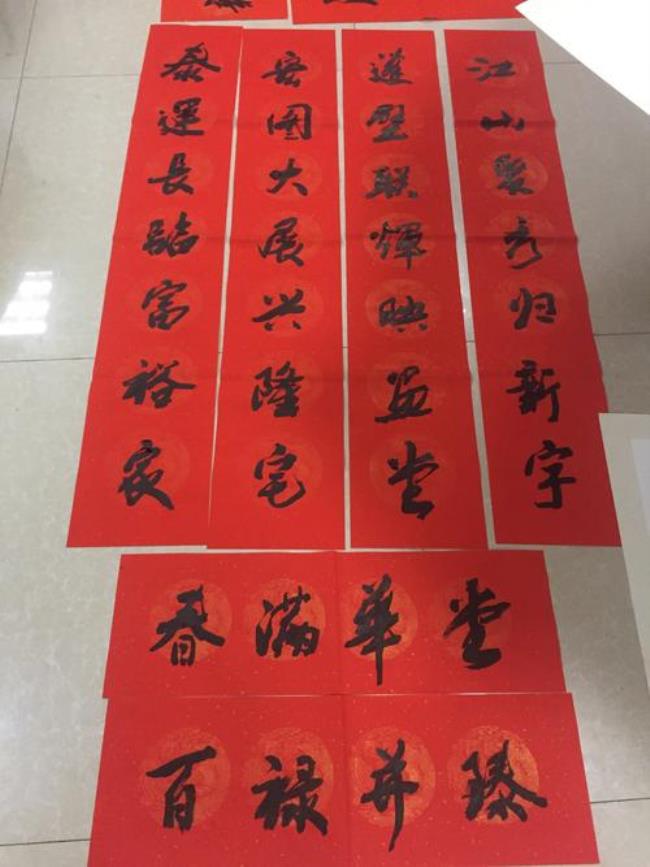 江山聚秀归新宇
壁联輝映画堂
宏图大展兴隆宅
泰運長臨富裕家
春满華堂
百禄并臻